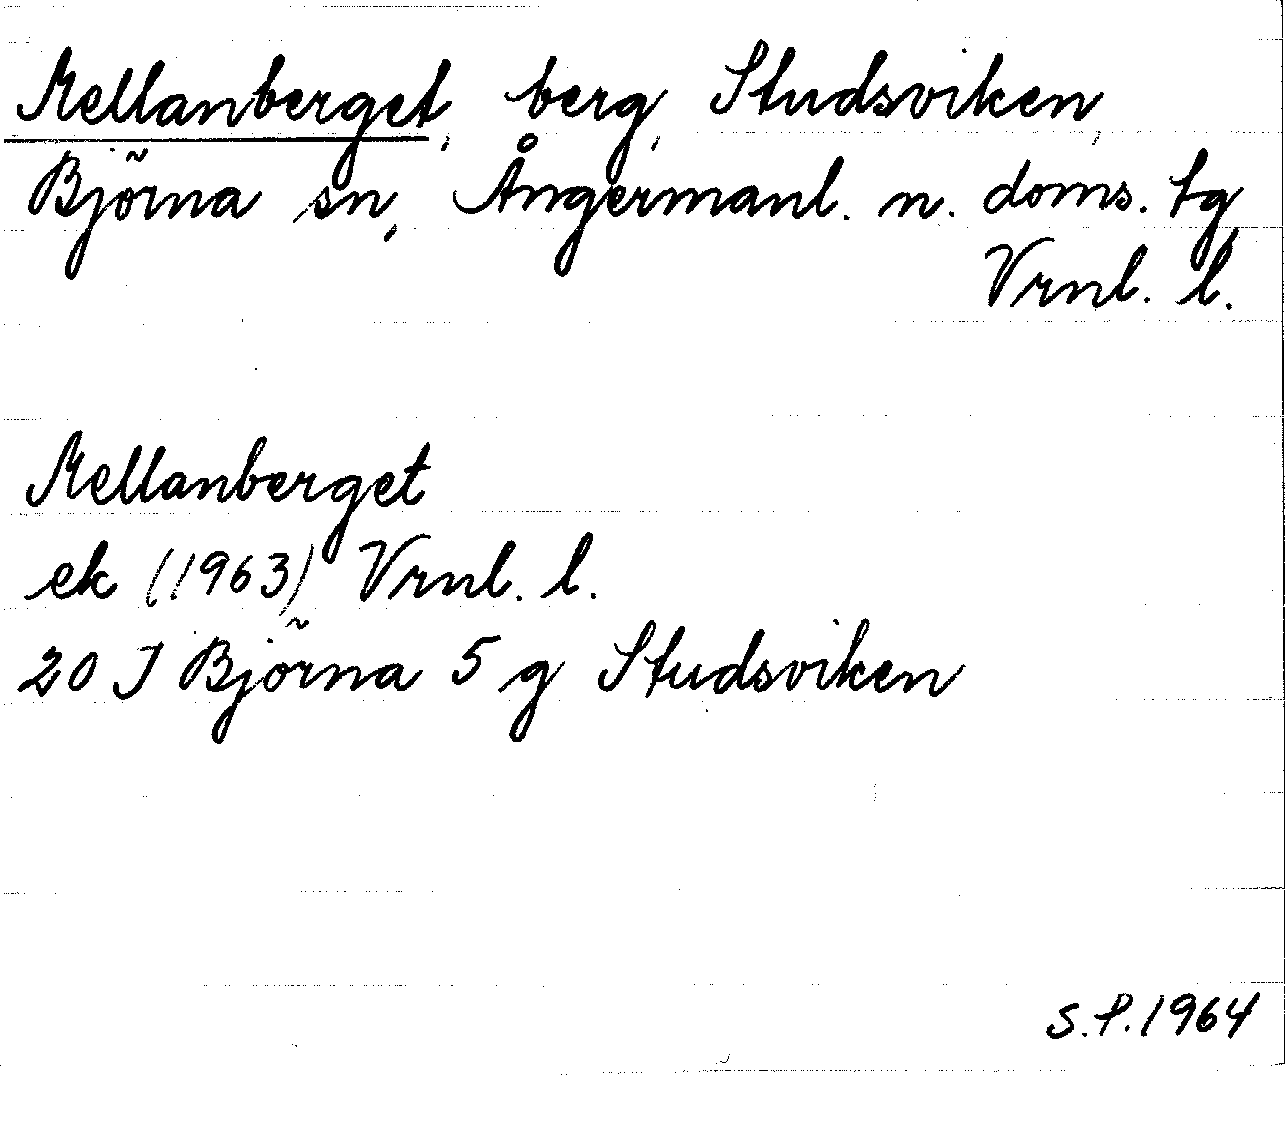 Mellanberget, berg, Studsviken,
Björna sn, Ångermanl. n. doms. tg
Vrnl. l.
Mellanberget
ek (1963) Vrnl. l.
20 J Björna 5 g Studsviken
S.P. 1964